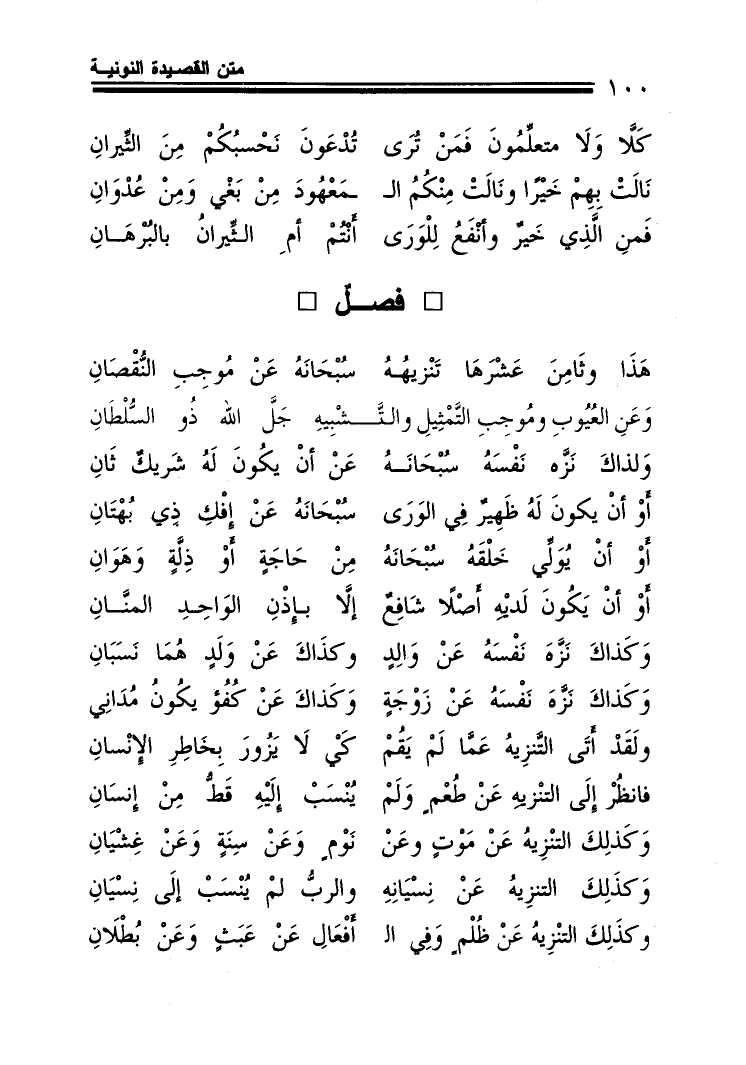 متن القصيدة النونية
١٠٠
كَلَّا وَلَا متعلِّمُونَ فَمَنْ تُرَى تُدْعَونَ نَحْسبُكُمْ مِنَ الثِّيرانِ
نَالَتْ بِهِمْ خَيْرًا ونَالَتْ مِنْكُمُ الـ ـمَعْهُودَ مِنْ بَغْيٍ وَمِنْ عُدْوَانِ
فَمنِ الَّذِي خَيرٌ وأنْفَعُ لِلْوَرَى أَنْتُمْ أمِ الـثِّيرانُ بالبُرْهَـانِ
□ فصـلٌ □
هَذَا وثَامِنَ عَشْرَهَا تَنْزِيهُـهُ سُبْحَانَهُ عَنْ مُوجبِ النُّقْصَانِ
وَعَنِ العُيُوبِ ومُوجبِ التَّمْثِيلِ والتَّـشْبِيهِ جَلَّ اللهُ ذُو السُّلْطَانِ
وَلذاكَ نَزَّه نَفْسَهُ سُبْحَانَـهُ عَنْ أنْ يَكُونَ لَهُ شَريكٌ ثَانِ
أَوْ أنْ يكونَ لَهُ ظَهِيرٌ فِي الوَرَى سُبْحَانَهُ عَنْ إفْكِ ذِي بُهْتَانِ
أَوْ أنْ يُوَلِّي خَلْقَهُ سُبْحَانَهُ مِنْ حَاجَةٍ أَوْ ذِلَّةٍ وَهَوَانِ
أَوْ أنْ يَكُونَ لَديْهِ أَصْلًا شَافِعٌ إلَّا بـإِذْنِ الوَاحِـدِ المنَّـانِ
وَكَذاكَ نَزَّهَ نَفْسَهُ عَنْ وَالِدٍ وكذَاكَ عَنْ وَلَدٍ هُمَا نَسَبَانِ
وَكَذاكَ نَزَّهَ نَفْسَهُ عَنْ زَوْجَةٍ وَكَذاكَ عَنْ كُفُؤٍ يكُونُ مُدَانِي
ولَقَدْ أتَى التَّنزِيهُ عَمَّا لَمْ يَقُمْ كَيْ لَا يَزُورَ بِخَاطِرِ الإِنْسانِ
فانظُرْ إلَى التنْزِيهِ عَنْ طُعْمٍ وَلَمْ يُنْسَبْ إلَيْهِ قَطُّ مِنْ إنسَانِ
وَكَذلِكَ التنْزِيهُ عَنْ مَوْتٍ وعَنْ نَوْمٍ وَعَنْ سِنَةٍ وَعَنْ غِشْيَانِ
وَكَذلِكَ التنزِيهُ عَنْ نِسْيَانِهِ والربُّ لمْ يُنْسَبْ إلَى نِسْيَانِ
وكَذَلِكَ التنْزِيهُ عَنْ ظُلْمٍ وَفِي الـ أَفْعَالِ عَنْ عَبَثٍ وَعَنْ بُطْلَانِ